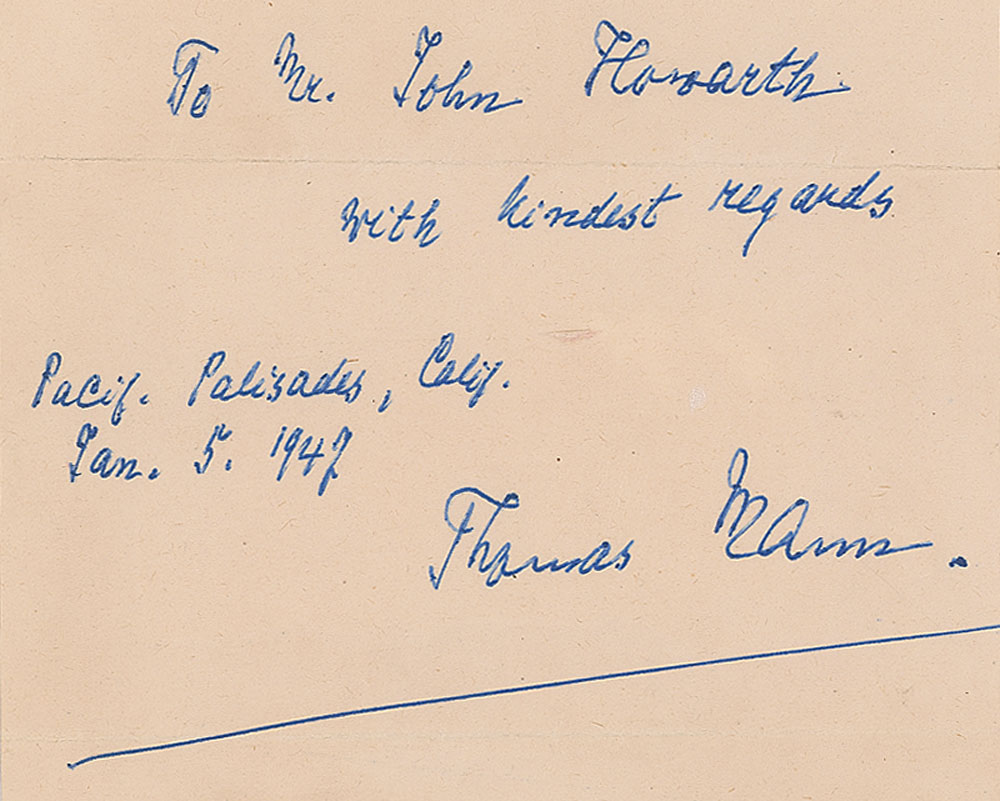 To Mr. John Howarth
with kindest regards
Pacif. Palisades, Calif.
Jan. 5. 1947
Thomas Mann.